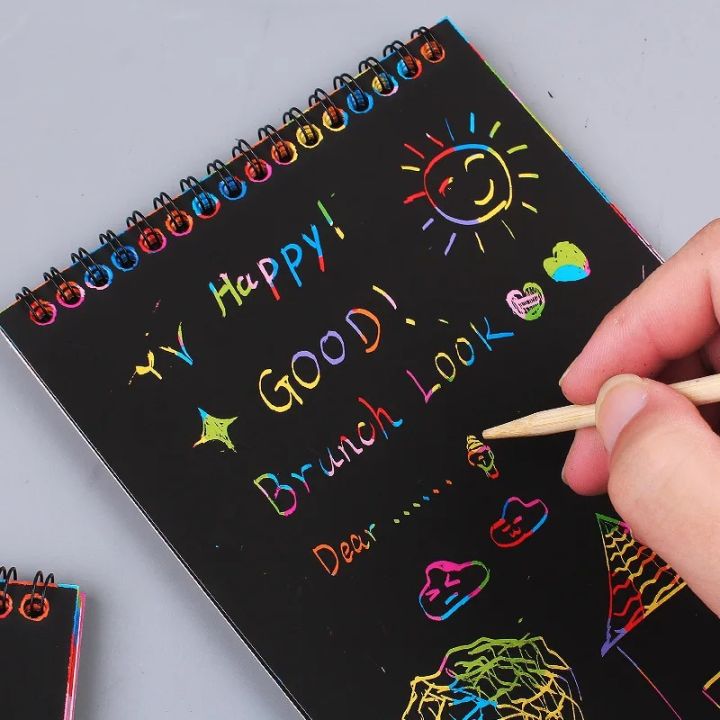 YV Happy!
GOOD!
Brunch Look
Dear ......